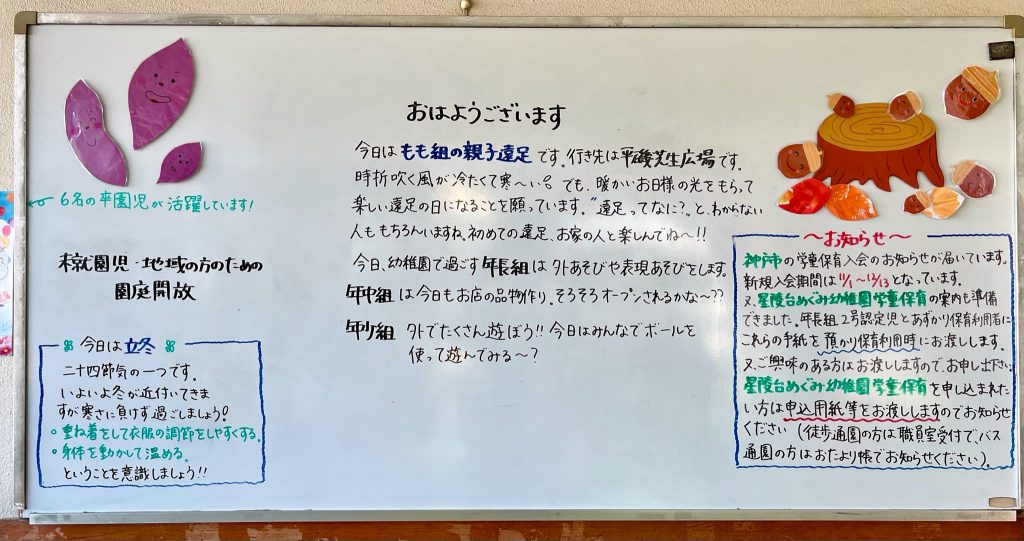 おはようございます
今日はもも組の親子遠足です。行き先は平磯芝生広場です。
時折吹く風が冷たくて寒〜い。でも、暖かいお日様の光をもらって
楽しい遠足の日になることを願っています。"遠足ってなに?"と、わからない
人ももちろんいますね、初めての遠足、お家の人と楽しんでね〜!!
今日、幼稚園で過ごす年長組は外あそびや表現あそびをします。
年中組は今日もお店の品物作り。そろそろオープンされるかな〜??
年少組 外でたくさん遊ぼう!! 今日はみんなでボールを
使って遊んでみる〜?
← 6名の卒園児が活躍しています!
未就園児・地域の方のための
園庭開放
今日は立冬
二十四節気の一つです。
いよいよ冬が近付いてきま
すが寒さに負けず過ごしましょう!
○重ね着をして衣服の調節をしやすくする。
・身体を動かして温める。
ということを意識しましょう!!
〜お知らせ〜
神戸市の学童保育入会のお知らせが届いています。
新規入会期間は11/1〜12/13となっています。
又、星陵台めぐみ幼稚園学童保育の案内も準備
できました。年長組2号認定児とあずかり保育利用者に
これらの手紙を預かり保育利用時にお渡しします。
又ご興味のある方はお渡ししますので、お申し出下さい。
星陵台めぐみ幼稚園学童保育を申し込まれた
い方は申込用紙等をお渡ししますのでお知らせ
ください(徒歩通園の方は職員室受付で、バス
通園の方はおたより帳でお知らせください)。